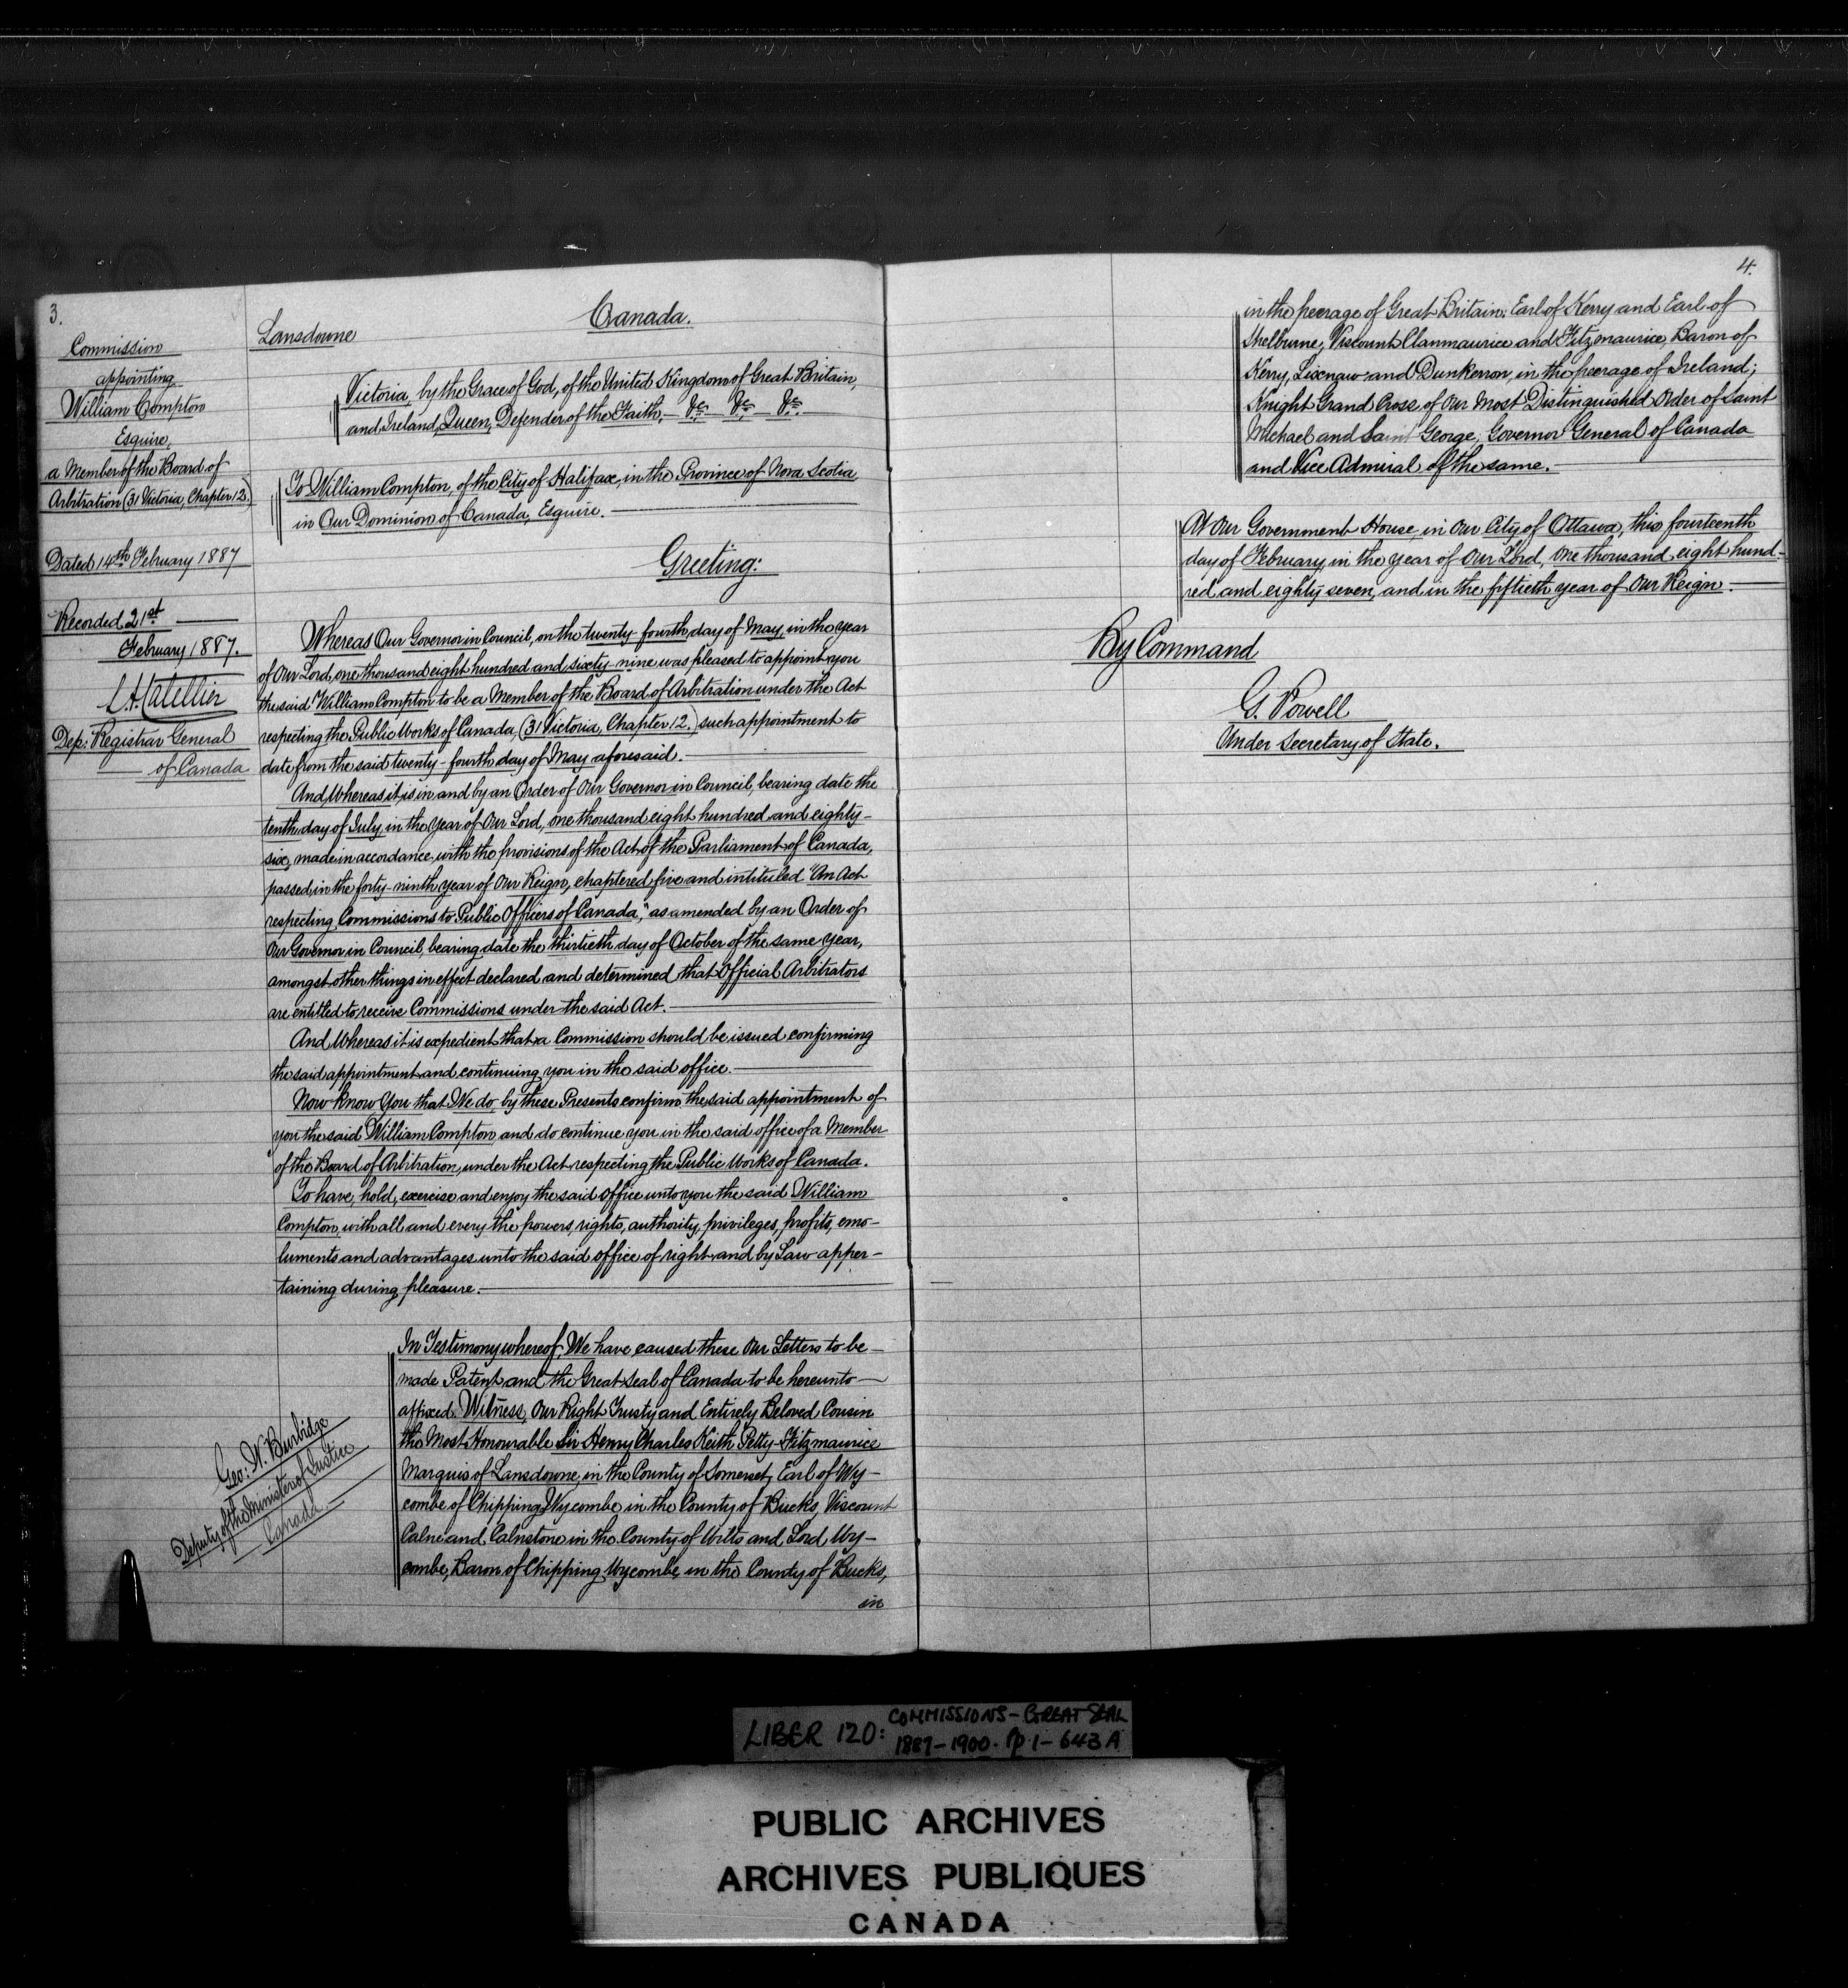 3.
Commission
appointing
William Compton
Esquire,
a Member of the Board of
Arbitration (31 Victoria, Chapter 12.)
Dated 14th February 1887
Recorded 21st
February 1887.
L.A. Catellier
Dep: Registrar General
of Canada
Canada.
Lansdowne
Victoria, by the Grace of God, of the United Kingdom of Great Britain,
and Ireland, Queen, Defender of the Faith, — &c. — &c. — &c. —
To William Compton, of the City of Halifax, in the Province of Nova Scotia
in Our Dominion of Canada, Esquire. —
Greeting:
Whereas Our Governor in Council, on the twenty-fourth day of May, in the year
of Our Lord, one thousand eight hundred and sixty-nine was pleased to appoint you
the said William Compton to be a Member of the Board of Arbitration under the Act
respecting the Public Works of Canada, (31 Victoria, Chapter 12.) such appointment to
date from the said twenty-fourth day of May aforesaid. —
And Whereas it is in and by an Order of Our Governor in Council, bearing date the
tenth day of July in the year of Our Lord, one thousand eight hundred and eighty-
six, made in accordance with the provisions of the Act of the Parliament of Canada,
passed in the forty-ninth year of Our Reign, chaptered five and intituled "An Act
respecting Commissions to Public Officers of Canada," as amended by an Order of
Our Governor in Council, bearing date the thirtieth day of October of the same year,
amongst other things in effect declared and determined that Official Arbitrators
are entitled to receive Commissions under the said Act. —
And Whereas it is expedient that a Commission should be issued confirming
the said appointment and continuing you in the said office. —
Now know You that We do, by these Presents confirm the said appointment of
you the said William Compton, and do continue you in the said office of a Member
of the Board of Arbitration, under the Act respecting the Public Works of Canada.
To have, hold, exercise and enjoy the said office unto you the said William
Compton, with all and every the powers, rights, authority, privileges, profits, emo-
luments and advantages unto the said office of right and by Law apper-
taining during pleasure. —
In Testimony whereof, We have caused these Our Letters to be —
made Patent and the Great Seal of Canada to be hereunto —
affixed. Witness, Our Right Trusty and Entirely Beloved Cousin
the Most Honourable Sir Henry Charles Keith Petty-Fitzmaurice
Marquis of Lansdowne, in the County of Somerset, Earl of Wy-
combe of Chipping Wycombe in the County of Bucks, Viscount
Calne and Calnstone in the County of Wilts and Lord Wy-
combe, Baron of Chipping Wycombe, in the County of Bucks,
in
Geo: W. Burbidge
Deputy of the Minister of Justice
Canada
4.
in the peerage of Great Britain; Earl of Kerry and Earl of
Shelburne, Viscount Clanmaurice and Fitzmaurice, Baron of
Kerry, Lixnaw and Dunkerron, in the peerage of Ireland;
Knight Grand Cross of Our Most Distinguished Order of Saint
Michael and Saint George; Governor General of Canada
and Vice Admiral of the same. —
At Our Government House, in Our City of Ottawa, this fourteenth
day of February, in the year of Our Lord, one thousand eight hund-
red and eighty seven, and in the fiftieth year of Our Reign. —
By Command
G. Powell
Under Secretary of State.
LIBER 120: COMMISSIONS - GREAT SEAL
1887-1900. pp 1-643A
PUBLIC ARCHIVES
ARCHIVES PUBLIQUES
CANADA